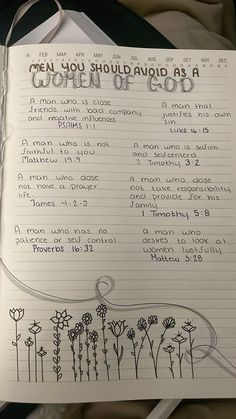 N. FEB MAR APR MAY JUN JUL AUG SEP OCT NOV DEC
MEN YOU SHOULD AVOID AS A
WOMEN OF GOD
A man who is close
friends with bad company
and negative influences
PSALMS 1:1
A man that
justifies his own
sin
Luke 16:15
A man who is not
faithful to you
Matthew 19:9
A man who is selfish
and selfcenterd
2 Timothy 3:2
A man who dose
not have a prayer
life
James 4:2-3
A man who dose
not take responsibility
and provide for his
family
1 Timothy 5:8
A man who has no
patience or self control
Proverbs 16:32
a man who
desires to look at
women lustfully
Mattew 5:28